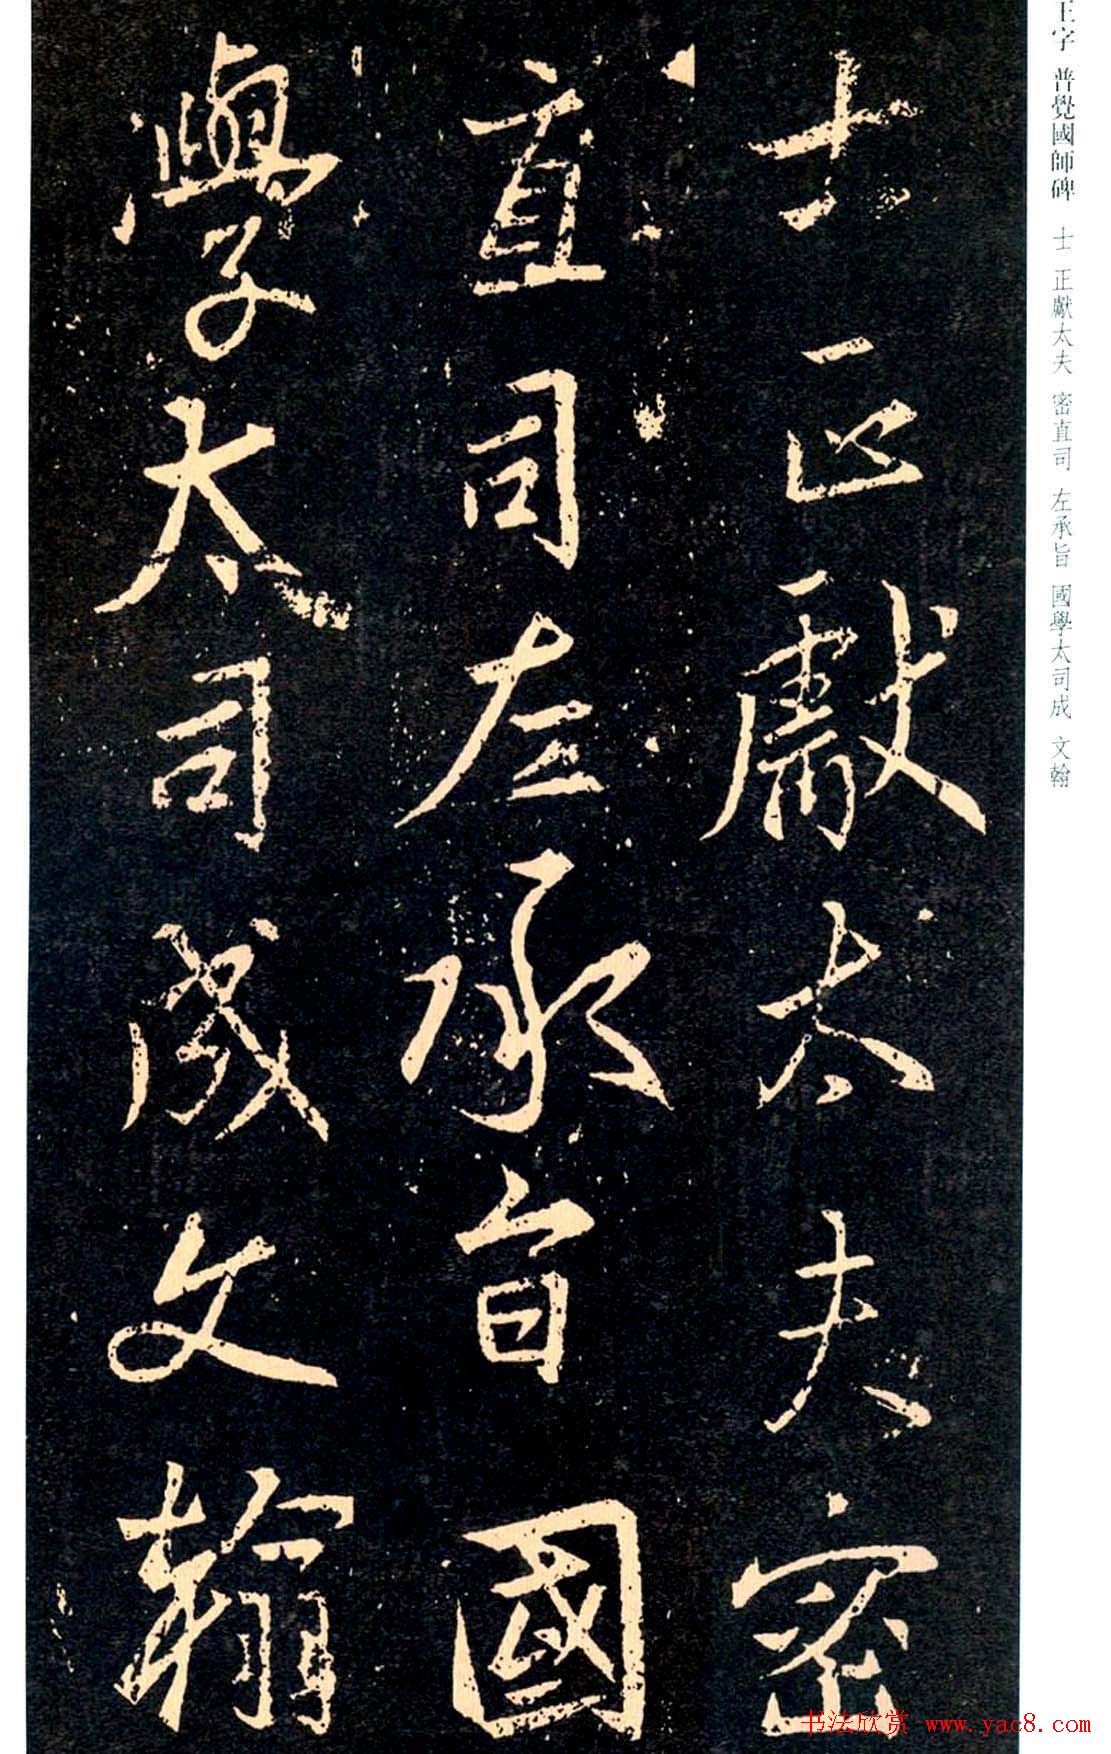 士正獻太夫密
直司左承旨國
學太司成文翰
王字 普覺國師碑 士 正獻太夫 密直司 左承旨 國學太司成 文翰
书法欣赏 www.yac8.com